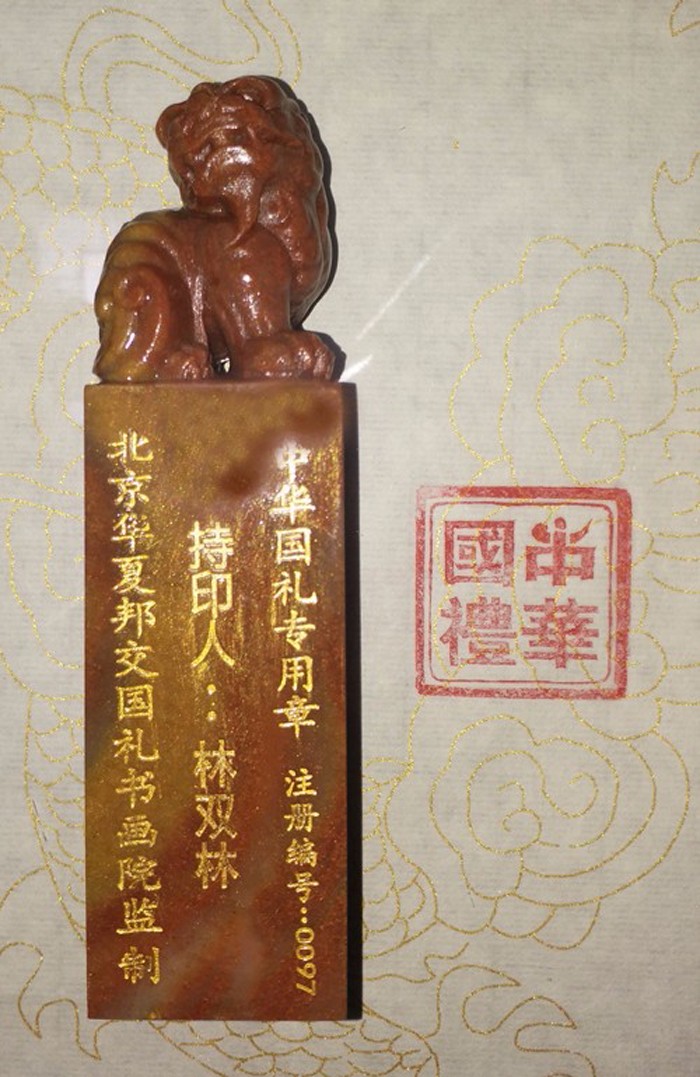 中华国礼专用章 注册编号:0097
持印人:林双林
北京华夏邦交国礼书画院监制
中華
國禮